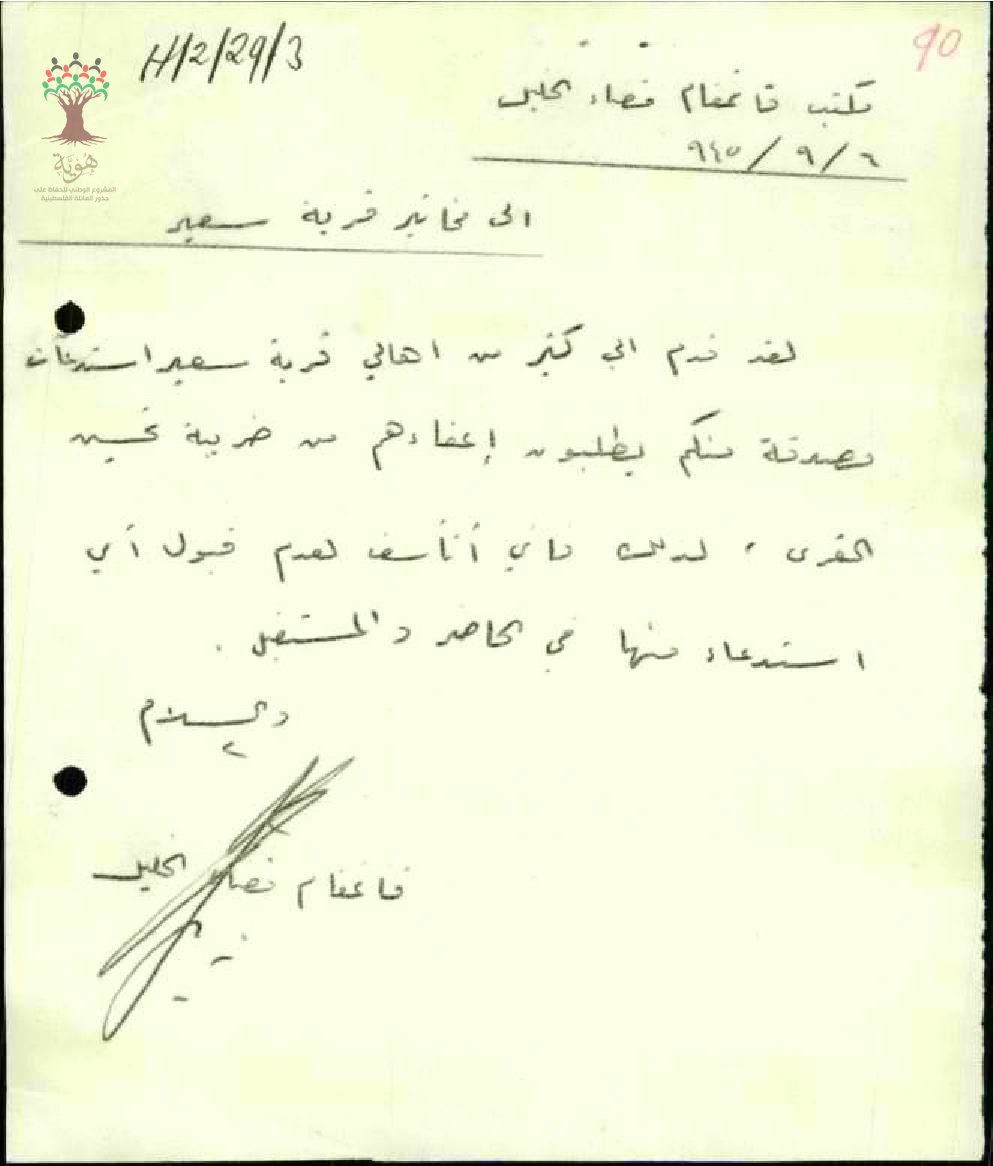 H/2/29/3
90
مكتب قائمقام قضاء الخليل
٩٤٥/٩/٦
الى مخاتير قرية سعير
لقد قدم الي كثير من اهالي قرية سعير استدعآت
مصدقة منكم يطلبون إعفاءهم من ضريبة تحسين
القرى ، لذلك فاني أتأسف لعدم قبول أي
استدعاء منها في الحاضر والمستقبل .
والسلام
قائمقام قضاء الخليل
هُوِيَّة
المشروع الوطني للحفاظ على
جذور العائلة الفلسطينية